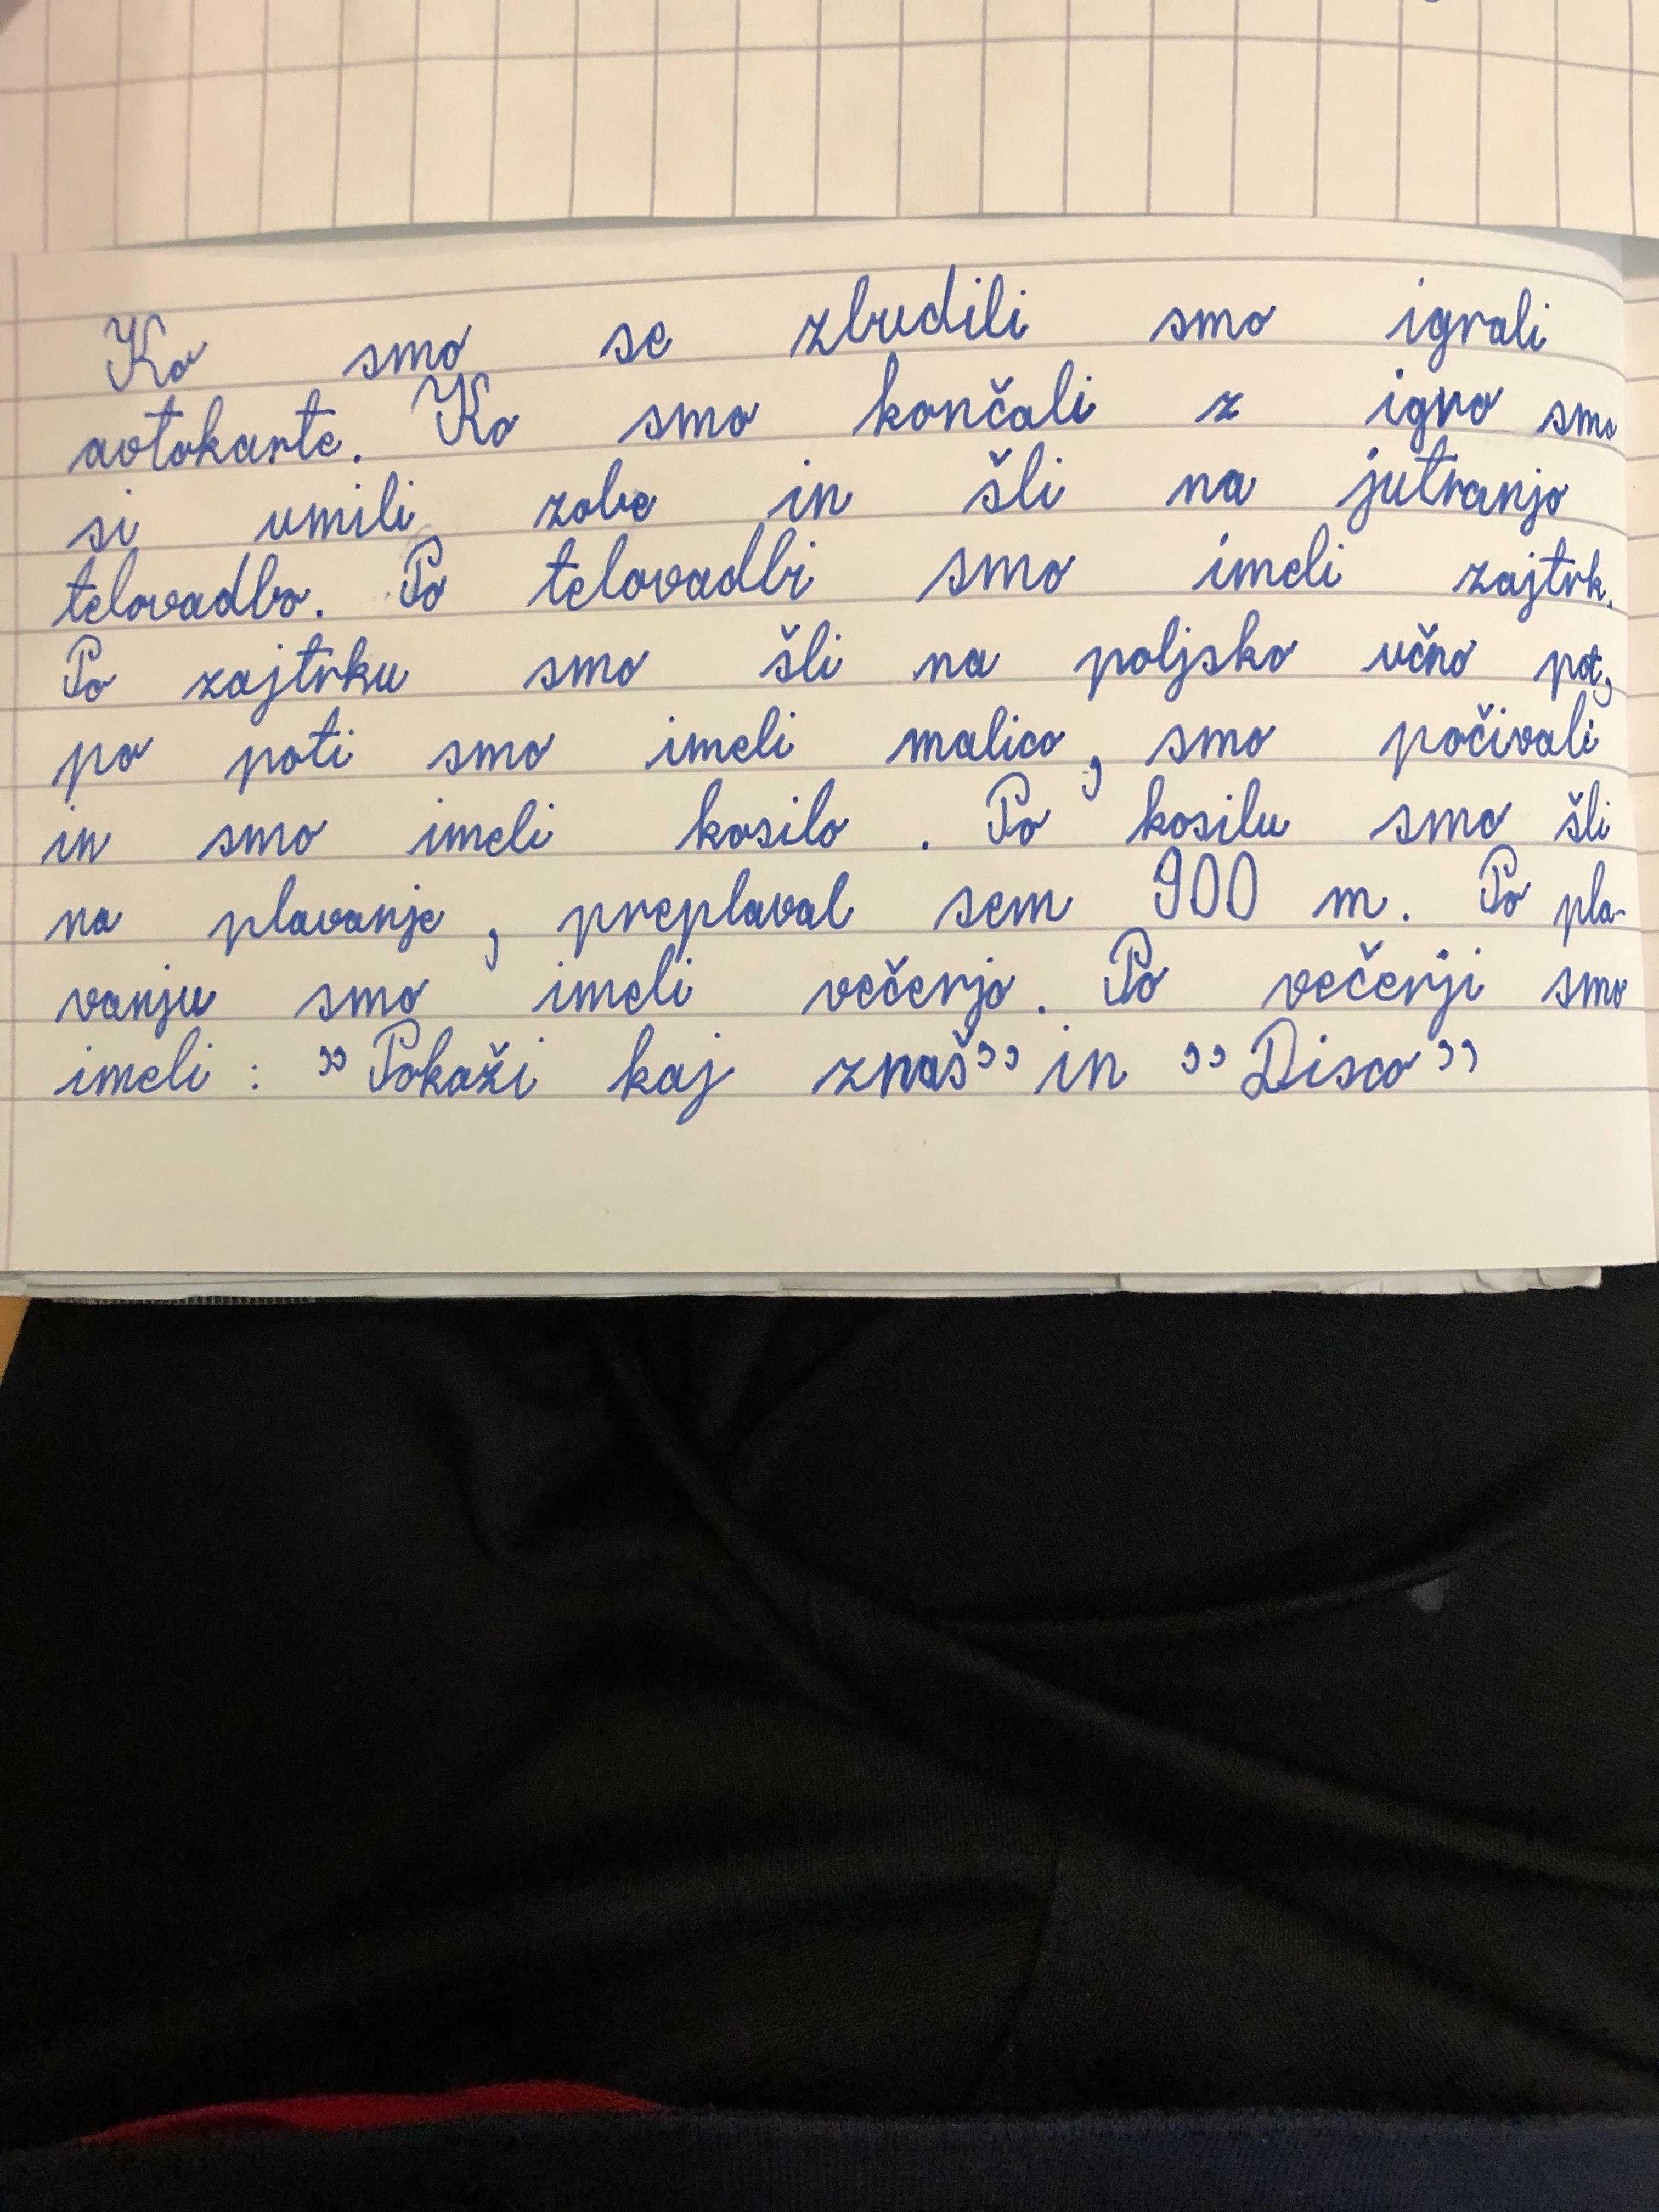 Ko smo se zbudili smo igrali
avtokarte. Ko smo končali z igro smo
si umili zobe in šli na jutranjo
telovadbo. Po telovadbi smo imeli zajtrk.
Po zajtrku smo šli na poljsko učno pot,
po poti smo imeli malico, smo počivali
in smo imeli kosilo . Po kosilu smo šli
na plavanje , preplaval sem 900 m. Po pla-
vanju smo imeli večerjo. Po večerji smo
imeli : ”Pokaži kaj znaš” in ”Disco”